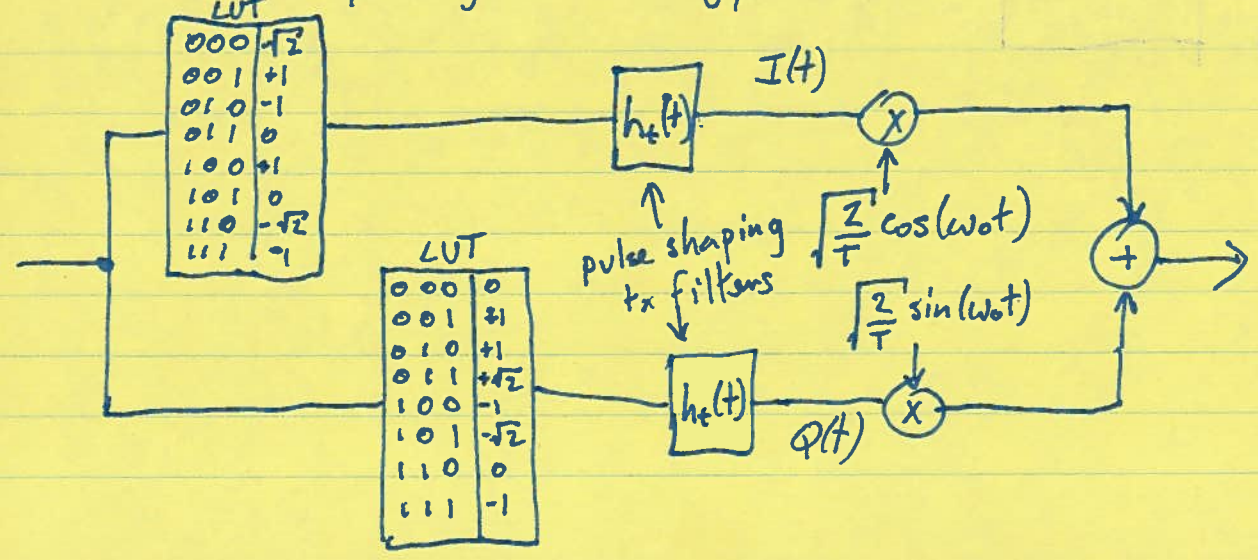 LUT
000 -√2
001 +1
010 -1
011 0
100 +1
101 0
110 -√2
111 -1
I(t)
h_t(t)
x
pulse shaping
tx filters
√(2/T) cos(ω₀t)
+
LUT
000 0
001 +1
010 +1
011 +√2
100 -1
101 -√2
110 0
111 -1
√(2/T) sin(ω₀t)
h_t(t)
Q(t)
x